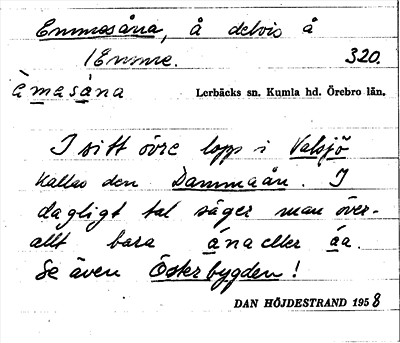 Emmesåna, å delvis å
1Emme. 320.
àmasána Lerbäcks sn. Kumla hd. Örebro län.
I sitt övre lopp i Valsjö
kallas den Dammaån. I
dagligt tal säger man över-
allt bara ána eller áa.
Se även Österbygden!
DAN HÖJDESTRAND 1958